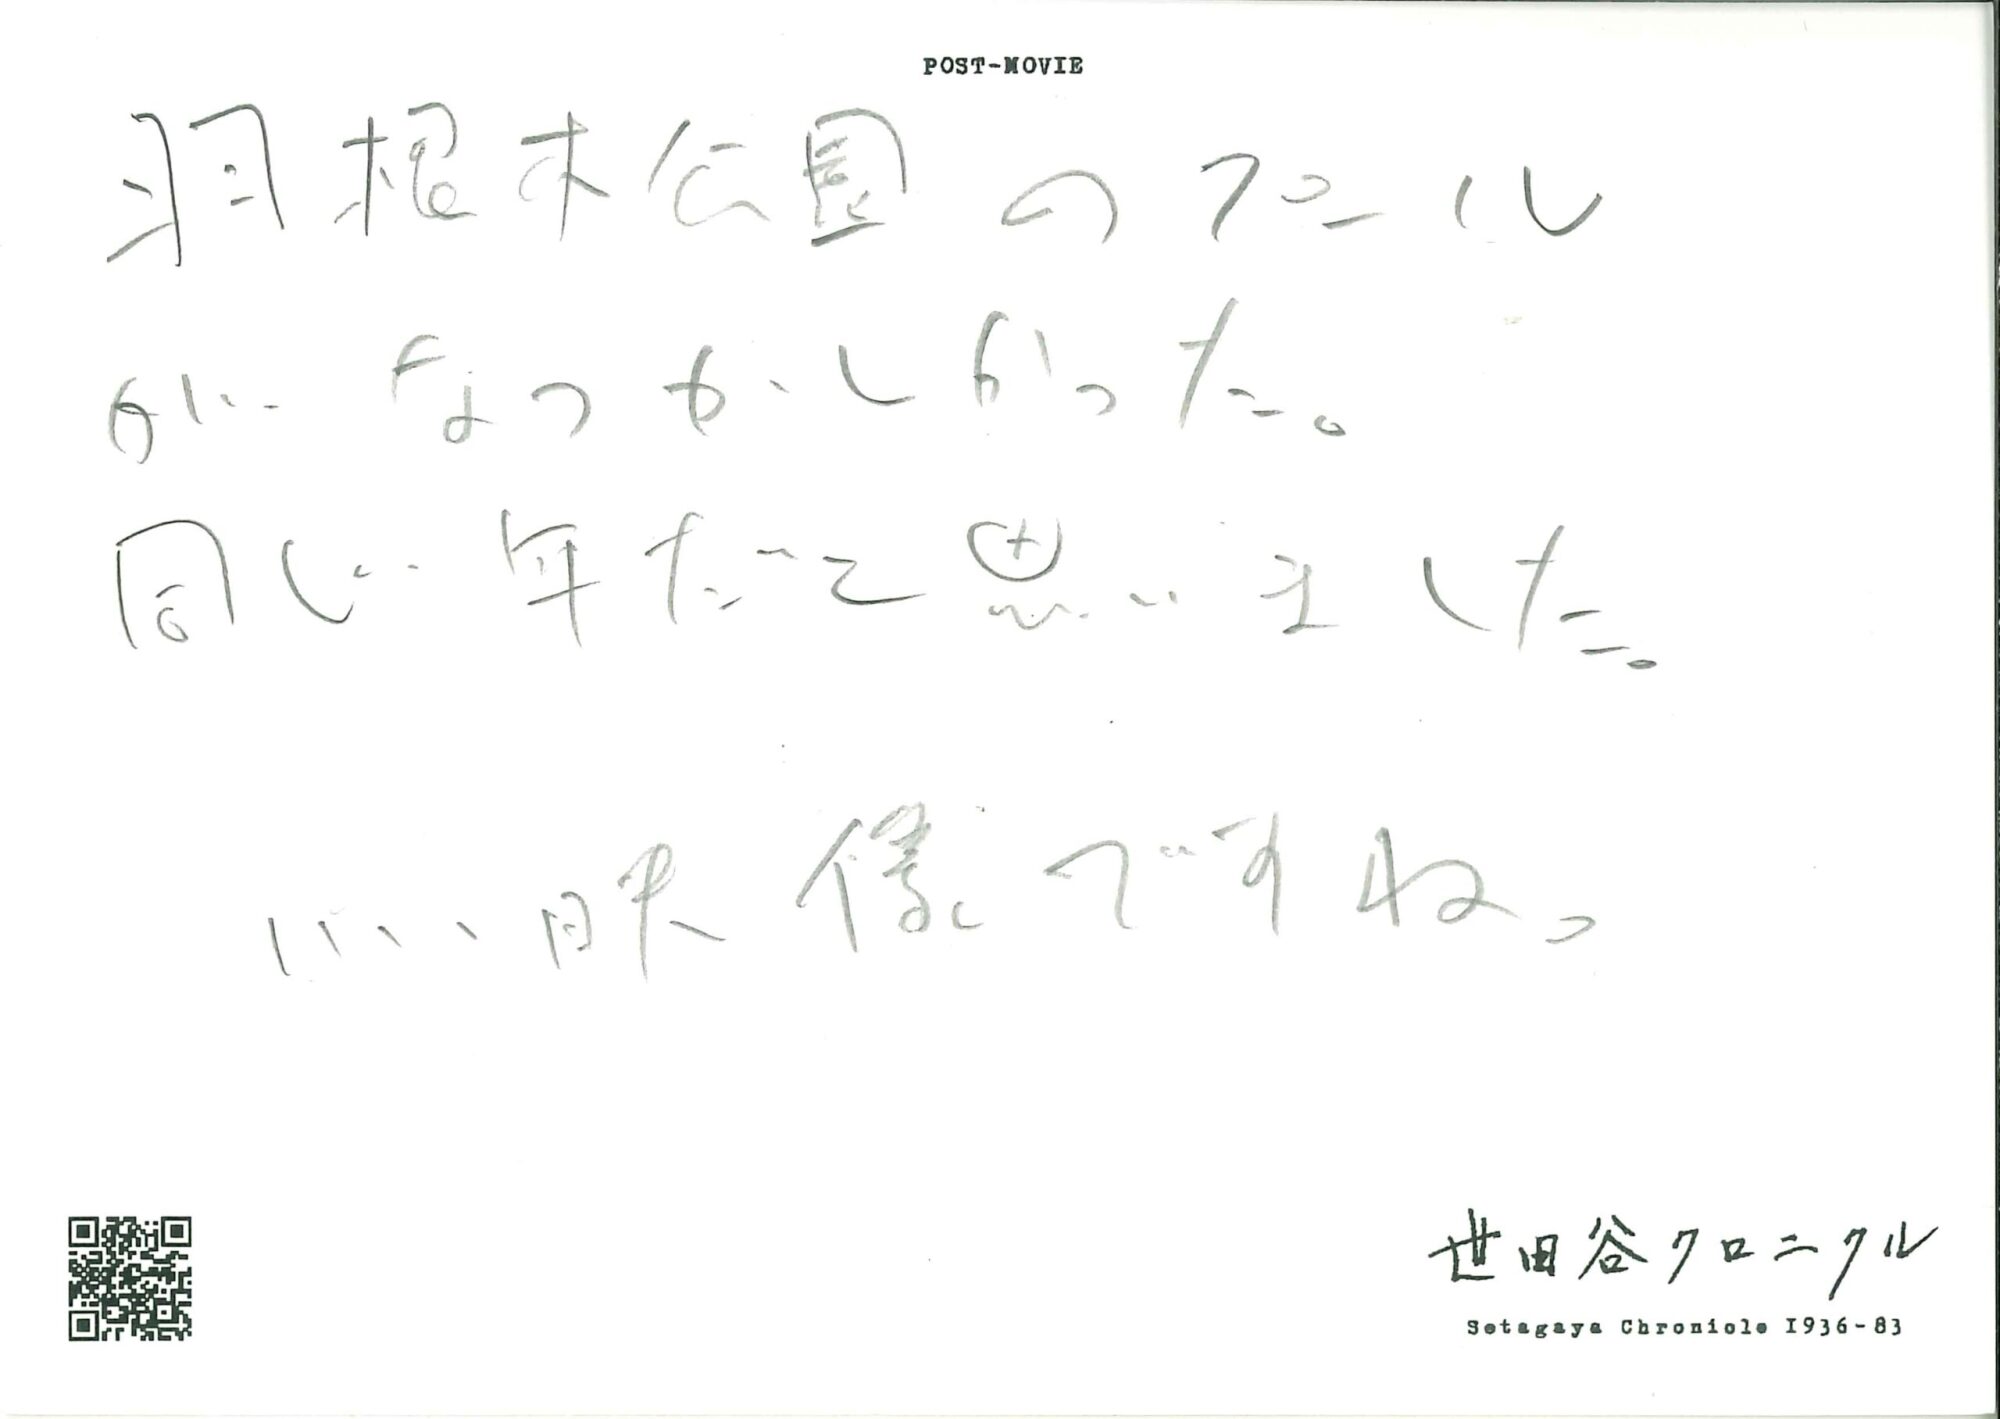 POST-MOVIE
羽根木公園のプール
がなつかしかった。
同じ年だと思いました。
いい映像ですね。
世田谷クロニクル
Setagaya Chronicle 1936-83